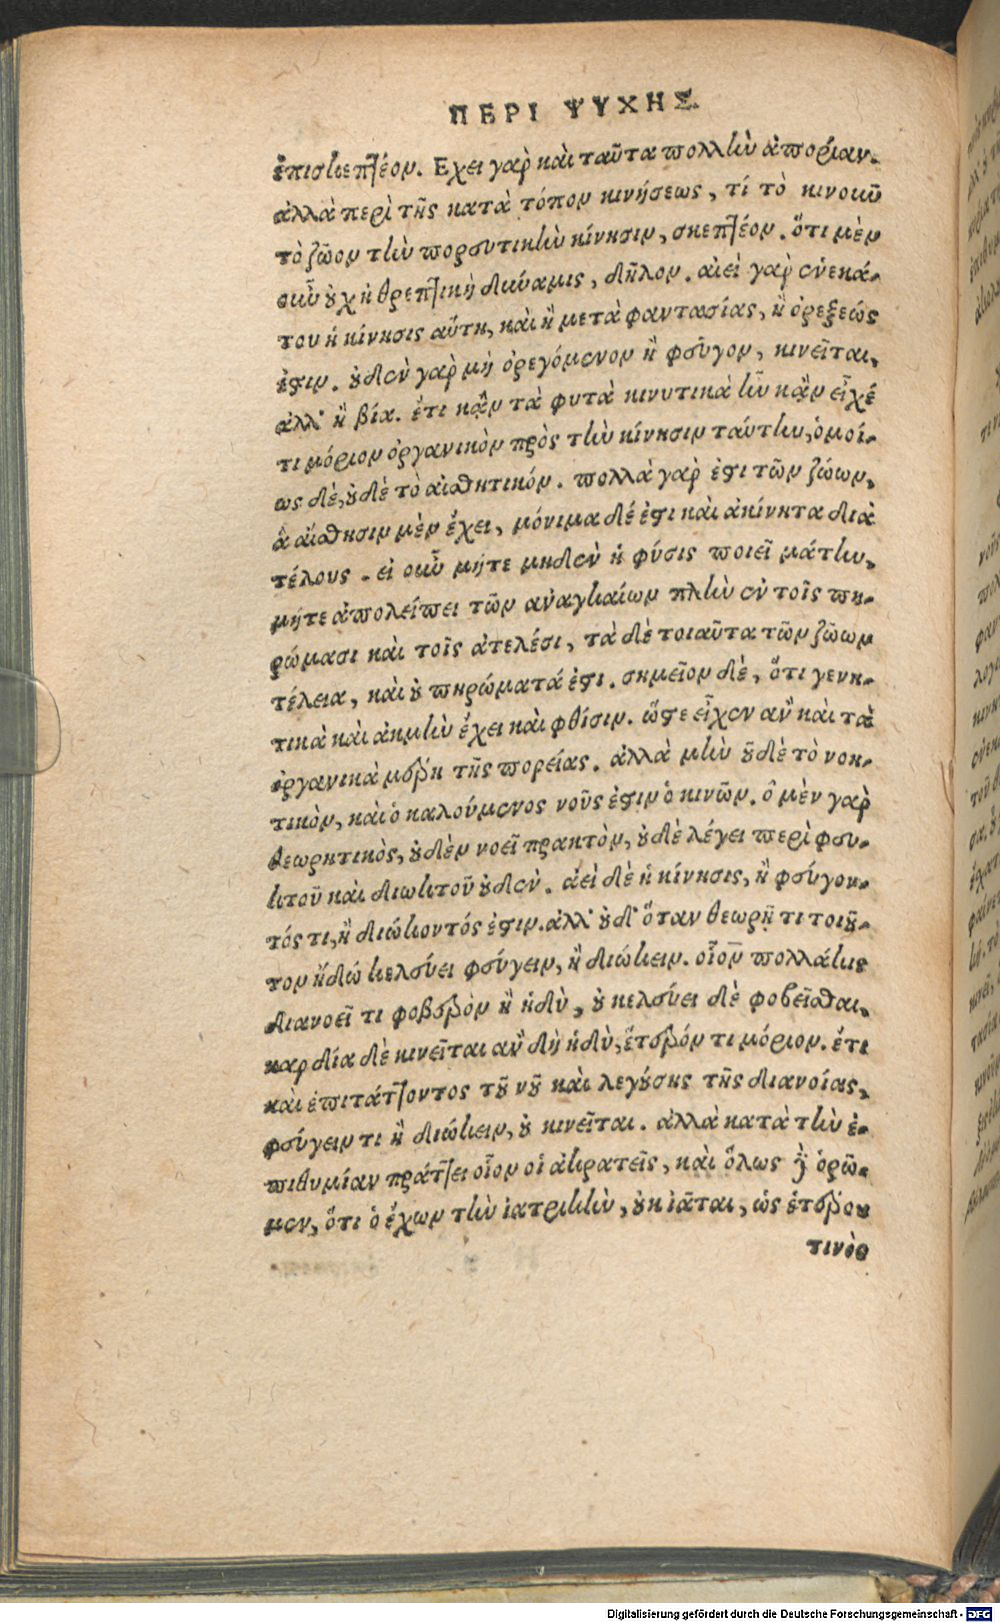 ΠΕΡΙ ΨΥΧΗΣ
ἐπισκεπτέον. Ἔχει γὰρ καὶ ταῦτα πολλὴν ἀπορίαν.
ἀλλὰ περὶ τῆς κατὰ τόπον κινήσεως, τί τὸ κινοῦν
τὸ ζῶον τὴν πορευτικὴν κίνησιν, σκεπτέον. ὅτι μὲν
οὖν οὐχ ἡ θρεπτικὴ δύναμις, δῆλον. αἰεὶ γὰρ ἕνεκά-
του ἡ κίνησις αὕτη, καὶ ἢ μετὰ φαντασίας, ἢ ὀρεξεώς
ἐστιν. οὐδὲν γὰρ μὴ ὀρεγόμενον ἢ φεῦγον, κινεῖται,
ἀλλ' ἢ βία. ἔτι κᾂν τὰ φυτὰ κινυτικὰ ἦν κᾂν εἶχέ
τι μόριον ὀργανικὸν πρὸς τὴν κίνησιν ταύτην, ὁμοί-
ως δὲ, οὐδὲ τὸ αἰσθητικόν. πολλὰ γὰρ ἐστι τῶν ζώων,
ἃ αἴσθησιν μὲν ἔχει, μόνιμα δέ ἐστι καὶ ἀκίνητα διὰ
τέλους. εἰ οὖν μήτε μηδὲν ἡ φύσις ποιεῖ μάτην,
μήτε ἀπολείπει τῶν ἀναγκαίων πλὴν ἐν τοῖς πη-
ρώμασι καὶ τοῖς ἀτελέσι, τὰ δὲ τοιαῦτα τῶν ζῶων
τέλεια, καὶ οὐ πηρώματά ἐστι. σημεῖον δὲ, ὅτι γενη-
τικὰ καὶ ἀκμὴν ἔχει καὶ φθίσιν. ὥστε εἶχεν ἂν καὶ τὰ
ὀργανικὰ μέρη τῆς πορείας. ἀλλὰ μὴν οὐδὲ τὸ νοη-
τικὸν, καὶ ὁ καλούμενος νοῦς ἐστιν ὁ κινῶν. ὁ μὲν γὰρ
θεωρητικὸς, οὐδὲν νοεῖ πρακτὸν, οὐδὲ λέγει περὶ φευ-
κτοῦ καὶ διωκτοῦ οὐδέν. ἀεὶ δὲ ἡ κίνησις, ἢ φεύγον-
τός τι, ἢ διώκοντός ἐστιν. ἀλλ' οὐδ' ὅταν θεωρῇ τι τοιοῦ-
τον ἤδη κελεύει φεύγειν, ἢ διώκειν. οἷον πολλάκις
διανοεῖ τι φοβερὸν ἢ ἡδὺ, οὐ κελεύει δὲ φοβεῖσθαι,
καρδία δὲ κινεῖται ἂν δὴ ἡδὺ, ἕτερόν τι μόριον. ἔτι
καὶ ἐπιτάττοντος τοῦ νοῦ καὶ λεγούσης τῆς διανοίας,
φεύγειν τι ἢ διώκειν, οὐ κινεῖται. ἀλλὰ κατὰ τὴν ἐ-
πιθυμίαν πράττει οἷον οἱ ἀκρατεῖς, καὶ ὅλως δὲ ὁρῶ-
μεν, ὅτι ὁ ἔχων τὴν ἰατρικὴν, οὐκ ἰᾶται, ὡς ἑτέρου
τινὸς